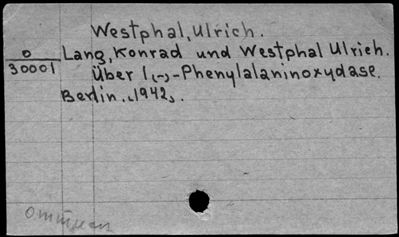 Westphal, Ulrich.
O Lang, Konrad und Westphal Ulrich.
30001 Über l(-)-Phenylalaninoxydase.
Berlin. (1942).
Оттиск